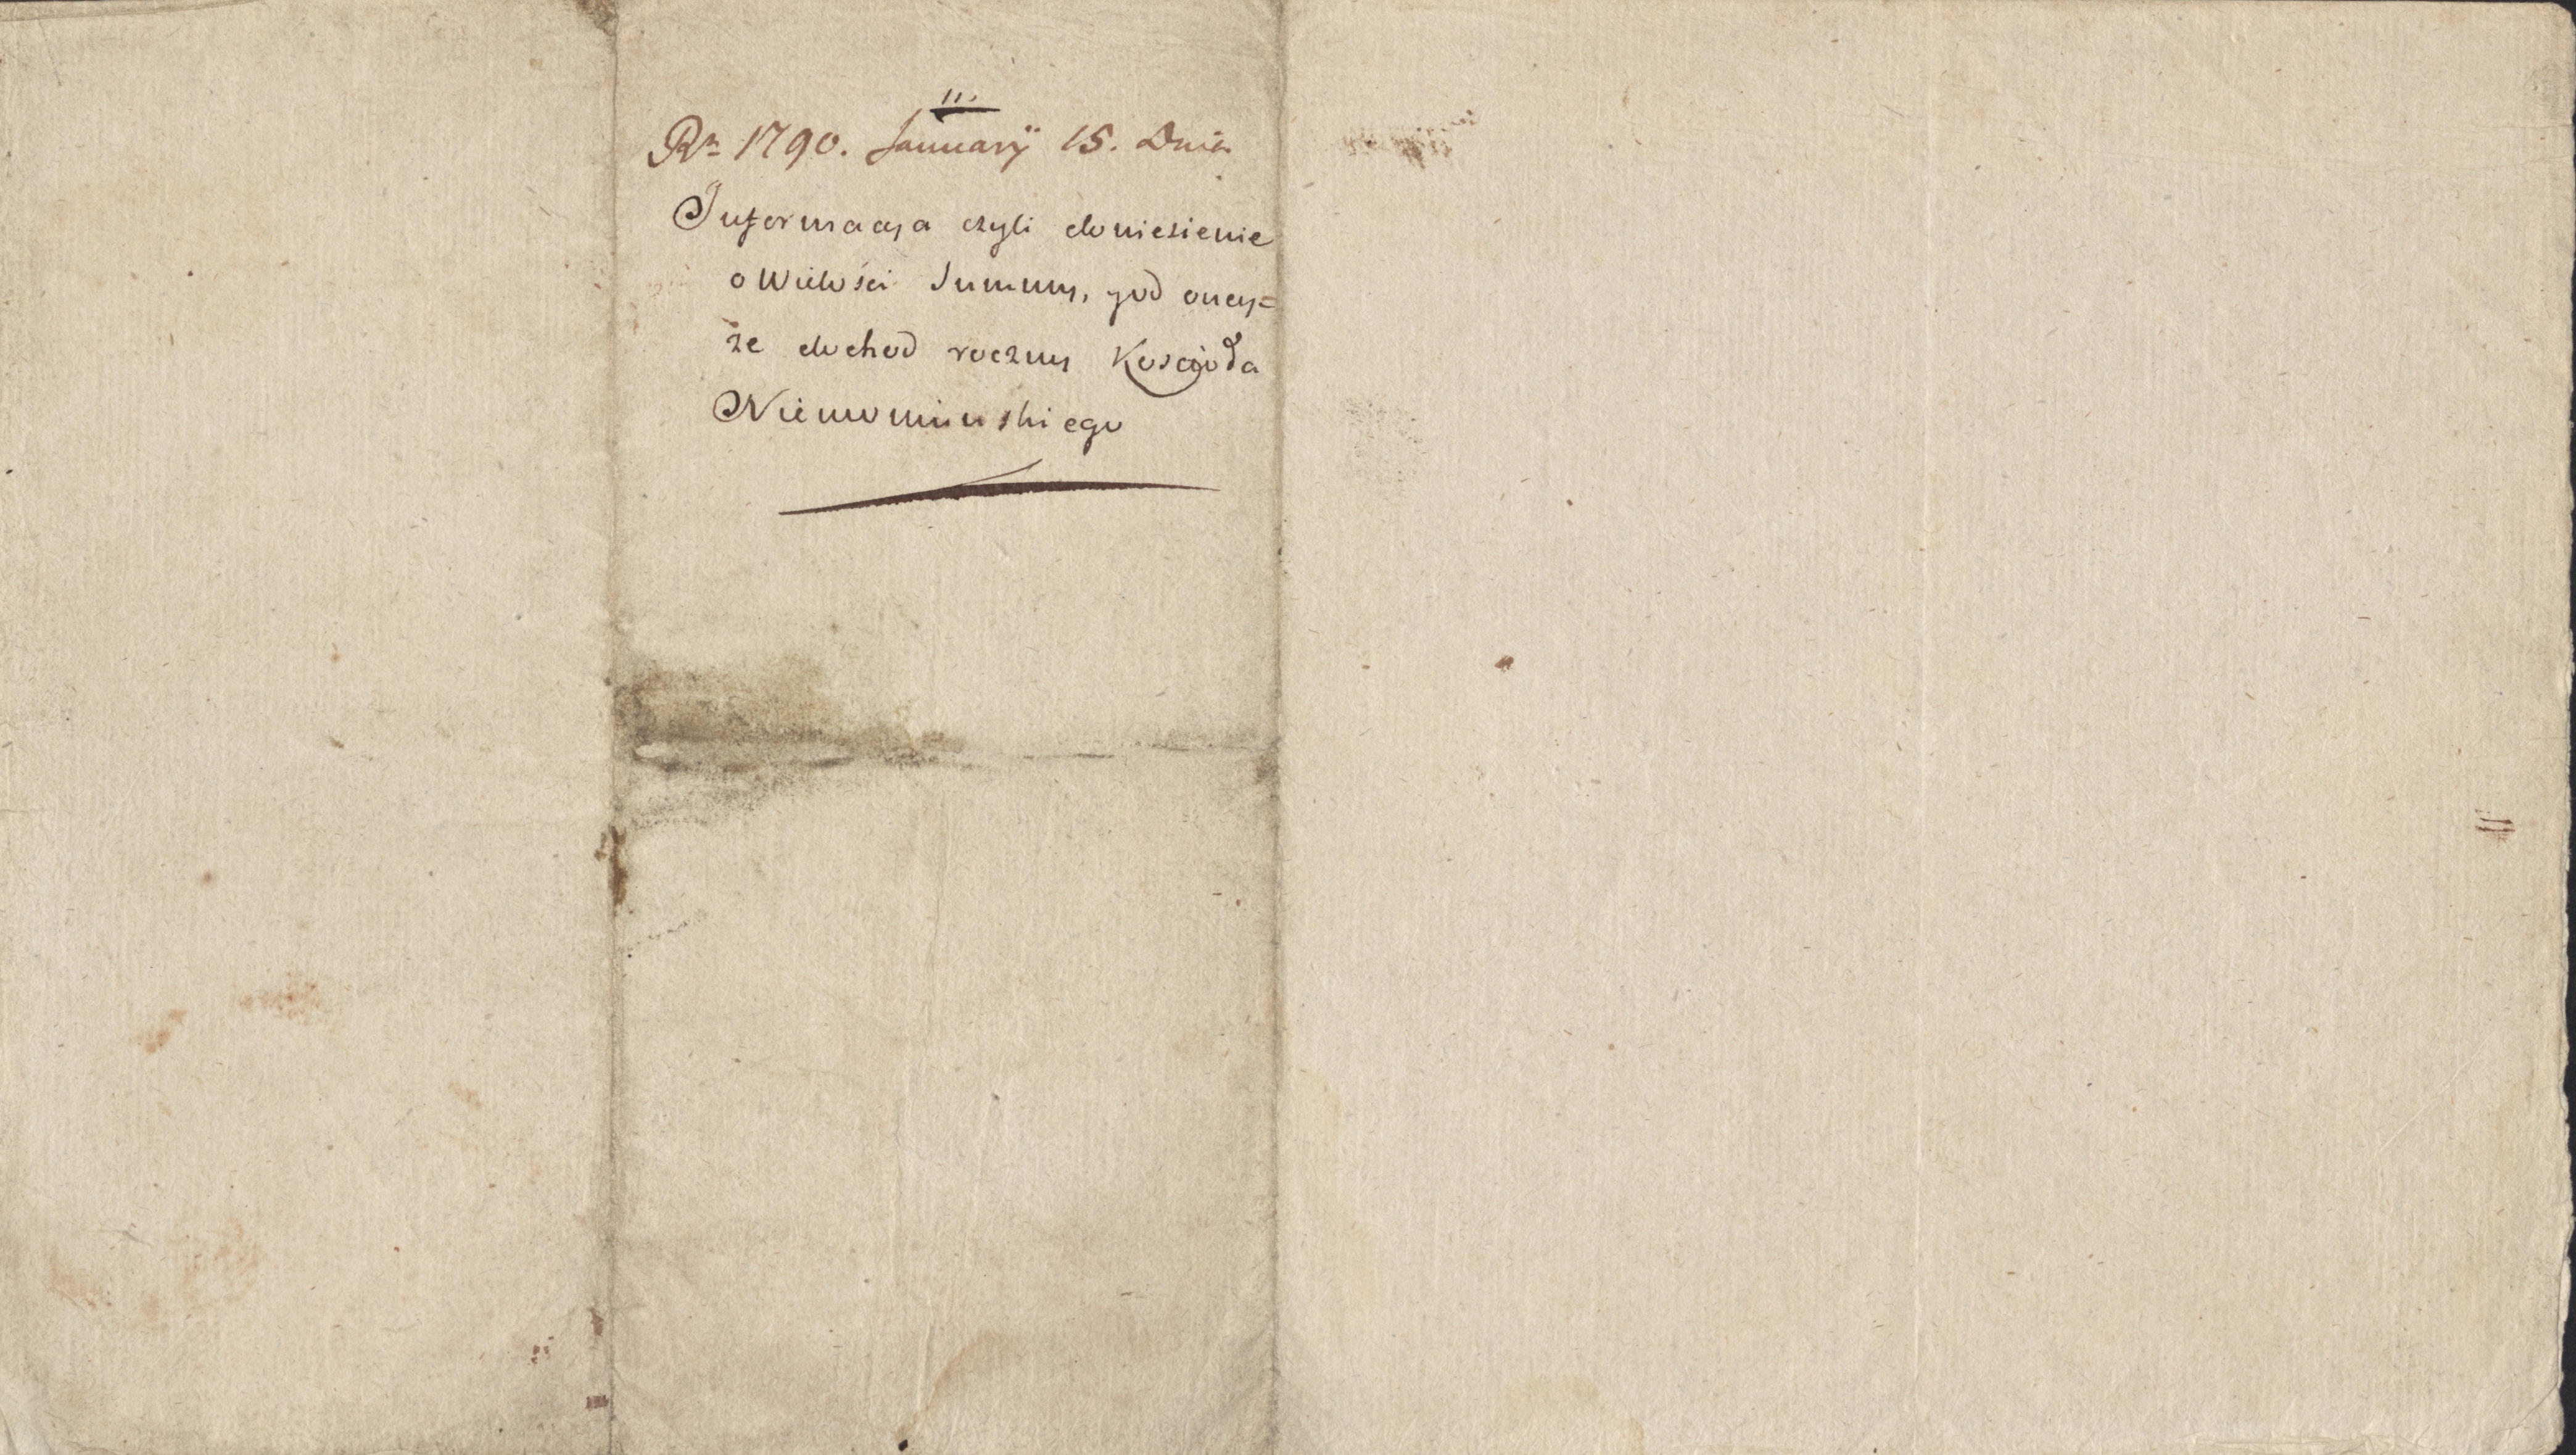 11.
Rᵘ 1790. Januarÿ 15. Dnia
Informacya czyli doniesienie
o Wielości Summy, god oney=
że dochod roczny Koscioła
Niemominskiego